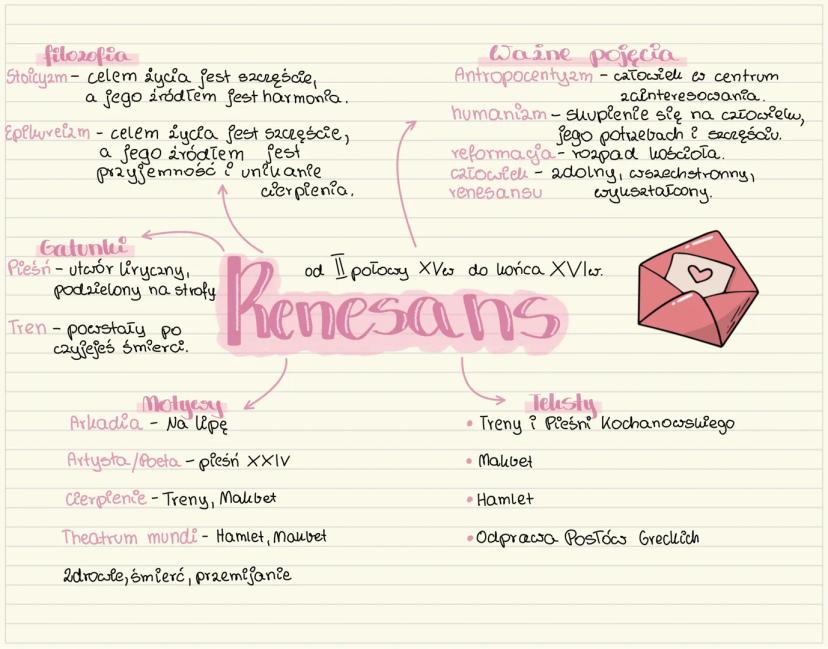 filozofia
Stoicyzm - celem życia jest szczęście,
a jego źródłem jest harmonia.
Epikureizm - celem życia jest szczęście,
a jego źródłem jest
przyjemność i unikanie
cierpienia.
Ważne pojęcia
Antropocentyzm - człowiek w centrum
zainteresowania.
humanizm - skupienie się na człowieku,
jego potrzebach i szczęściu.
reformacja - rozpad kościoła.
człowiek - zdolny, wszechstronny,
renesansu wykształcony.
Gatunki
Pieśń - utwór liryczny,
podzielony na strofy
Tren - powstały po
czyjejś śmierci.
od II połowy XVw do końca XVIw.
Renesans
Motywy
Arkadia - Na lipę
Artysta/Poeta - pieśń XXIV
Cierpienie - Treny, Makbet
Theatrum mundi - Hamlet, Makbet
Zdrowie, śmierć, przemijanie
Teksty
• Treny i Pieśni Kochanowskiego
• Makbet
• Hamlet
• Odprawa Posłów Greckich